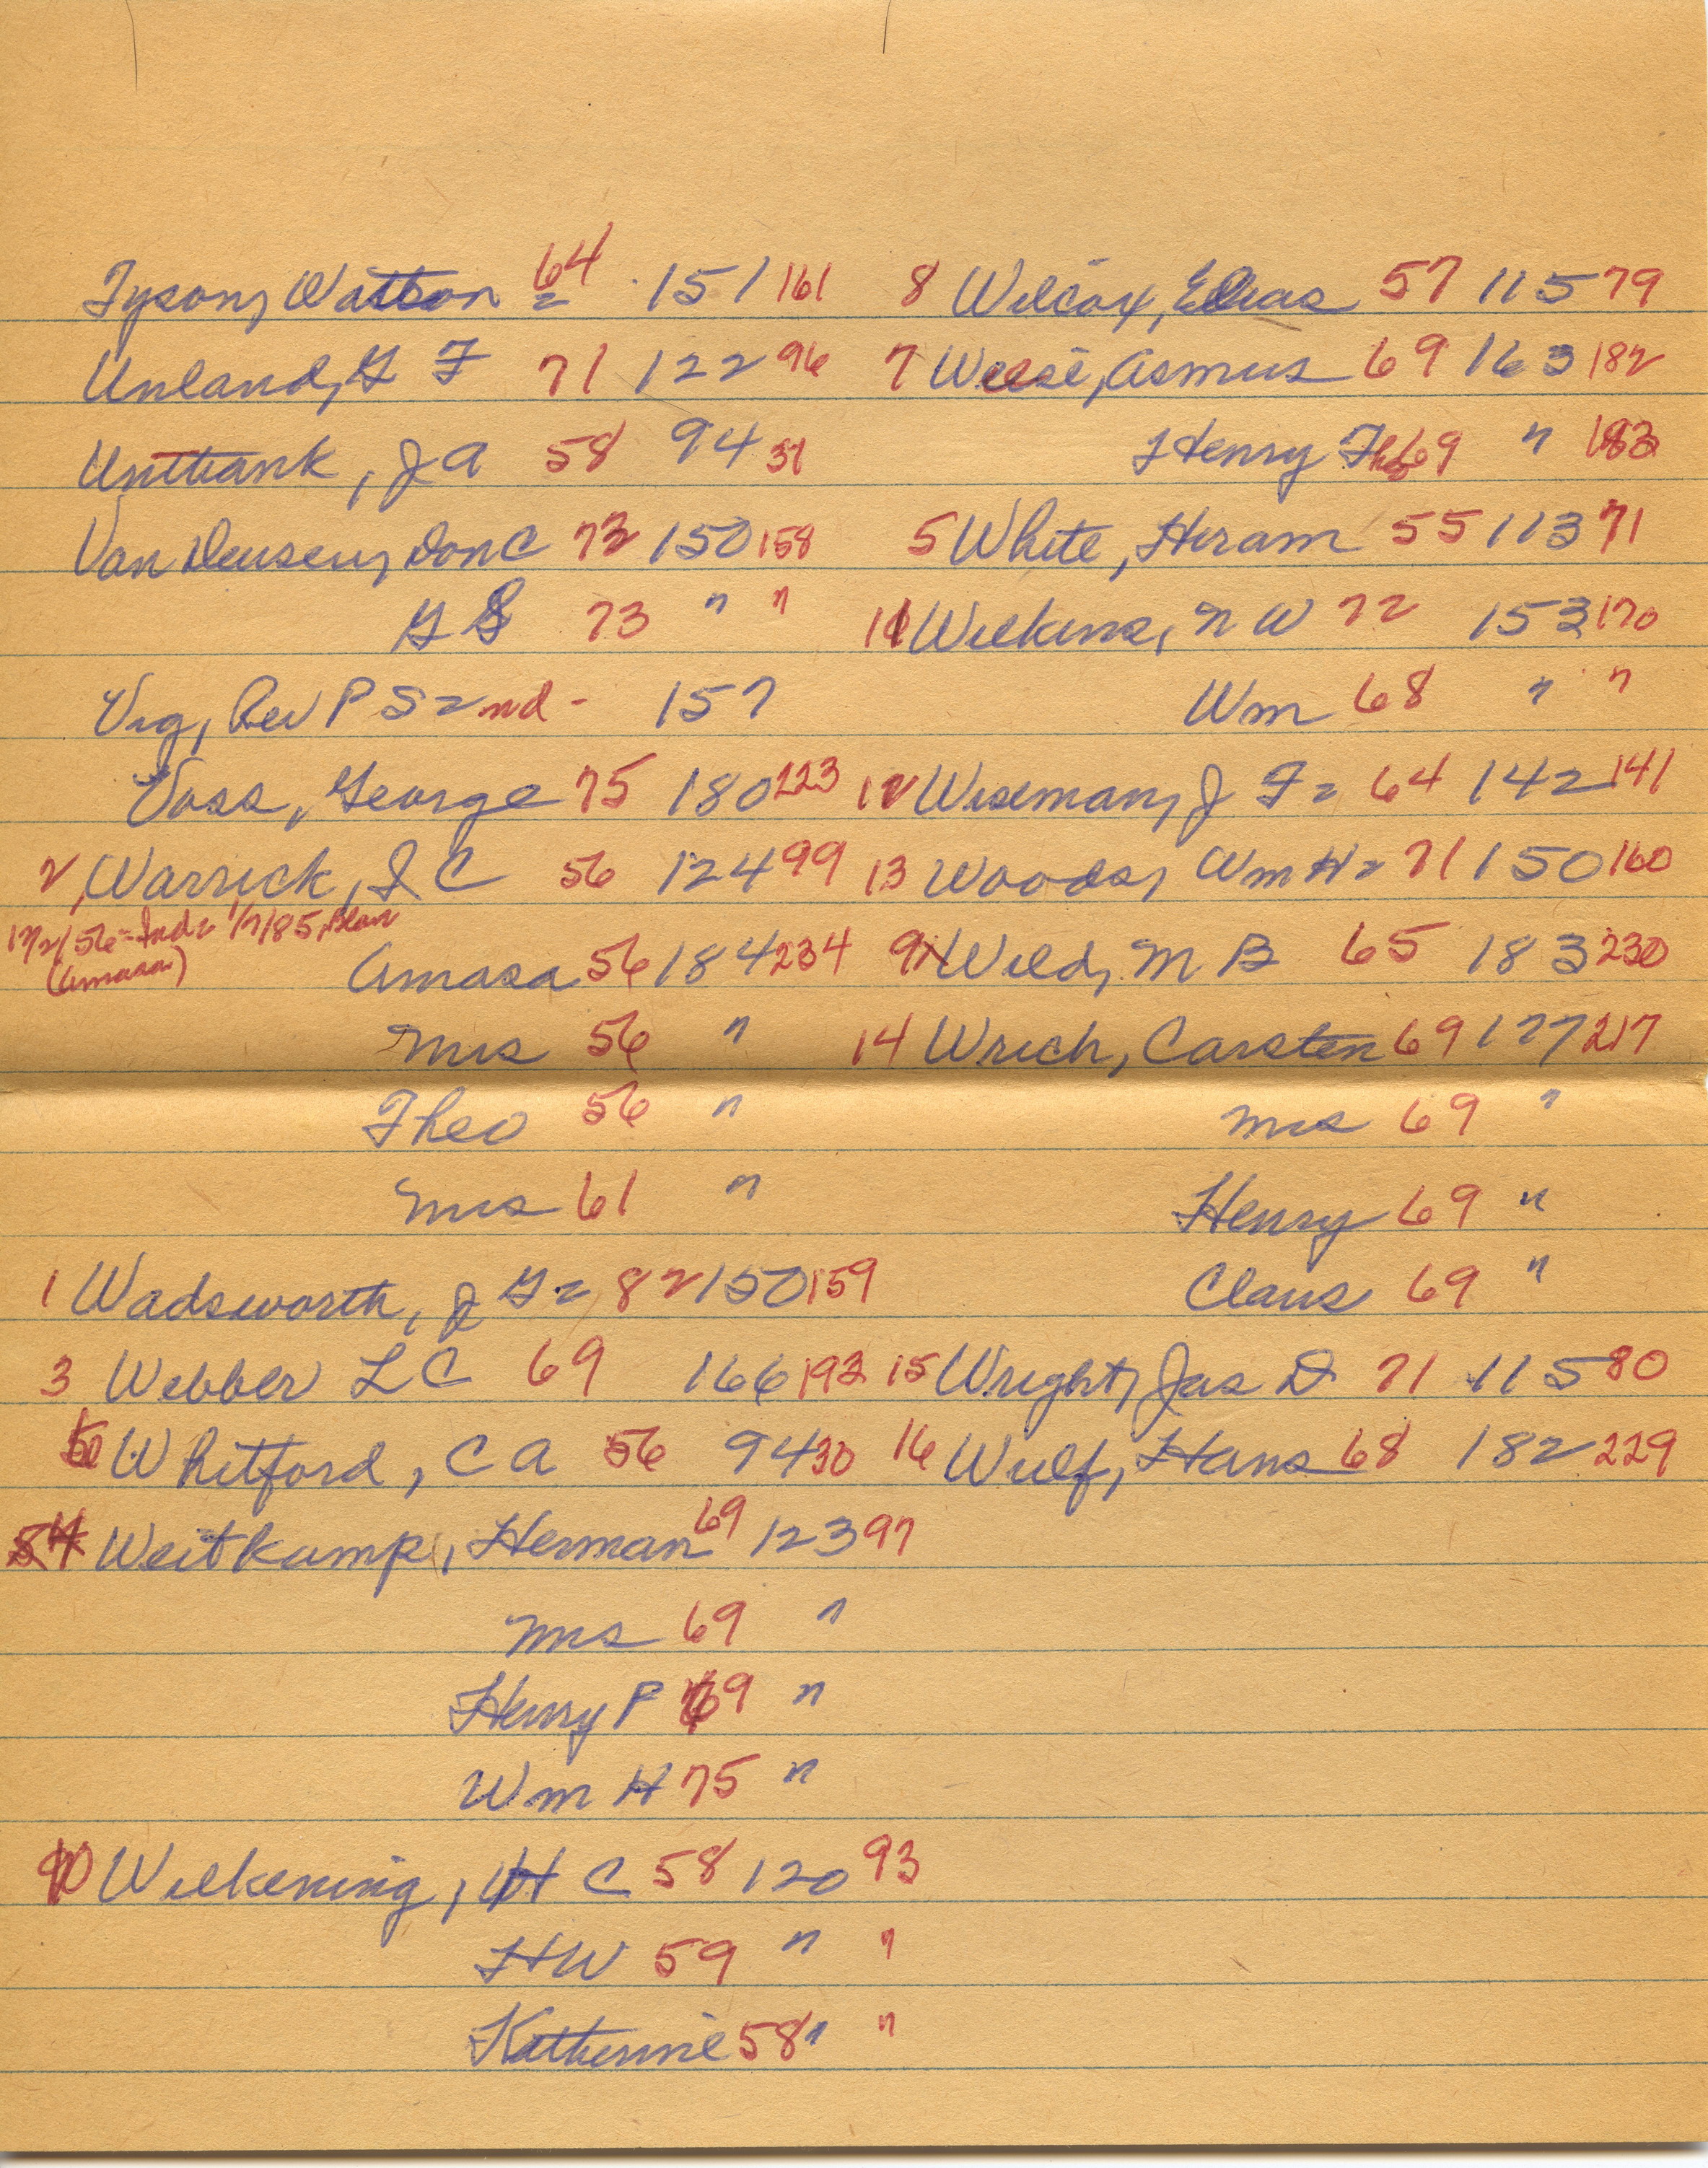 Tyson, Watson = 64 151 161
Unland, G F 71 122 96
Unthank, J A 58 94 31
Van Deusen, Don C 73 150 158
G S 73 " "
Vig, Rev P S = nd - 157
Voss, George 75 180 223
2, Warrick, J C 56 124 99
12/2/56 - Ind = 1/7/85, Blair
(Amasa)
Amasa 56 184 234
Mrs 56 "
Theo 56 "
Mrs 61 "
1 Wadsworth, J G = 82 150 159
3 Webber L C 69 166 193
Whitford, C A 56 94 30
4 Weitkamp, Herman 69 123 97
Mrs 69 "
Henry P 69 "
Wm H 75 "
10 Wilkening, H C 58 120 93
H W 59 " "
Katherine 58 " "
8 Wilcox, Elias 57 115 79
7 Wiese, Asmus 69 163 182
Henry F 69 " 183
5 White, Hiram 55 113 71
11 Wilkins, N W 72 153 170
Wm 68 " "
12 Wiseman, J F = 64 142 141
13 Woods, Wm H = 71 150 160
9 Wild, M B 65 183 230
14 Wrich, Carsten 69 177 217
Mrs 69 "
Henry 69 "
Claus 69 "
15 Wright, Jas D 71 115 80
16 Wulf, Hans 68 182 229